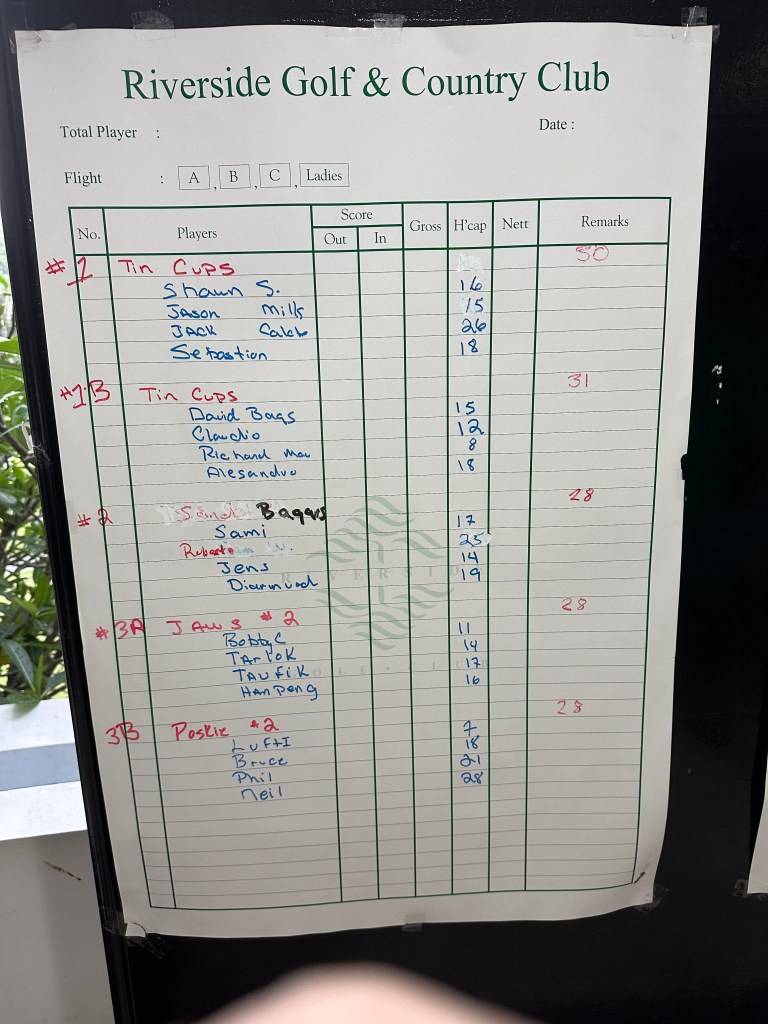 Riverside Golf & Country Club
Total Player :
Date :
Flight : A , B , C , Ladies
No. Players Score Out In Gross H'cap Nett Remarks
#1 Tin Cups 30
Shawn S. 16
Jason Mills 15
JACK Caleb 26
Sebastian 18
#1B Tin Cups 31
David Bags 15
Claudio 12
Richard Mac 8
Alesandro 18
#2 Sand Baggers 28
Sami 17
Roberto 25
Jens 14
Diarmuod 19
#3A JAWS #2 28
Bobby C 11
TARLOK 14
TAUFIK 17
HAN PENG 16
3B Poskie #2 28
LUFTI 7
Bruce 18
Phil 21
Neil 28
RIVERSIDE
GOLF • CLUB